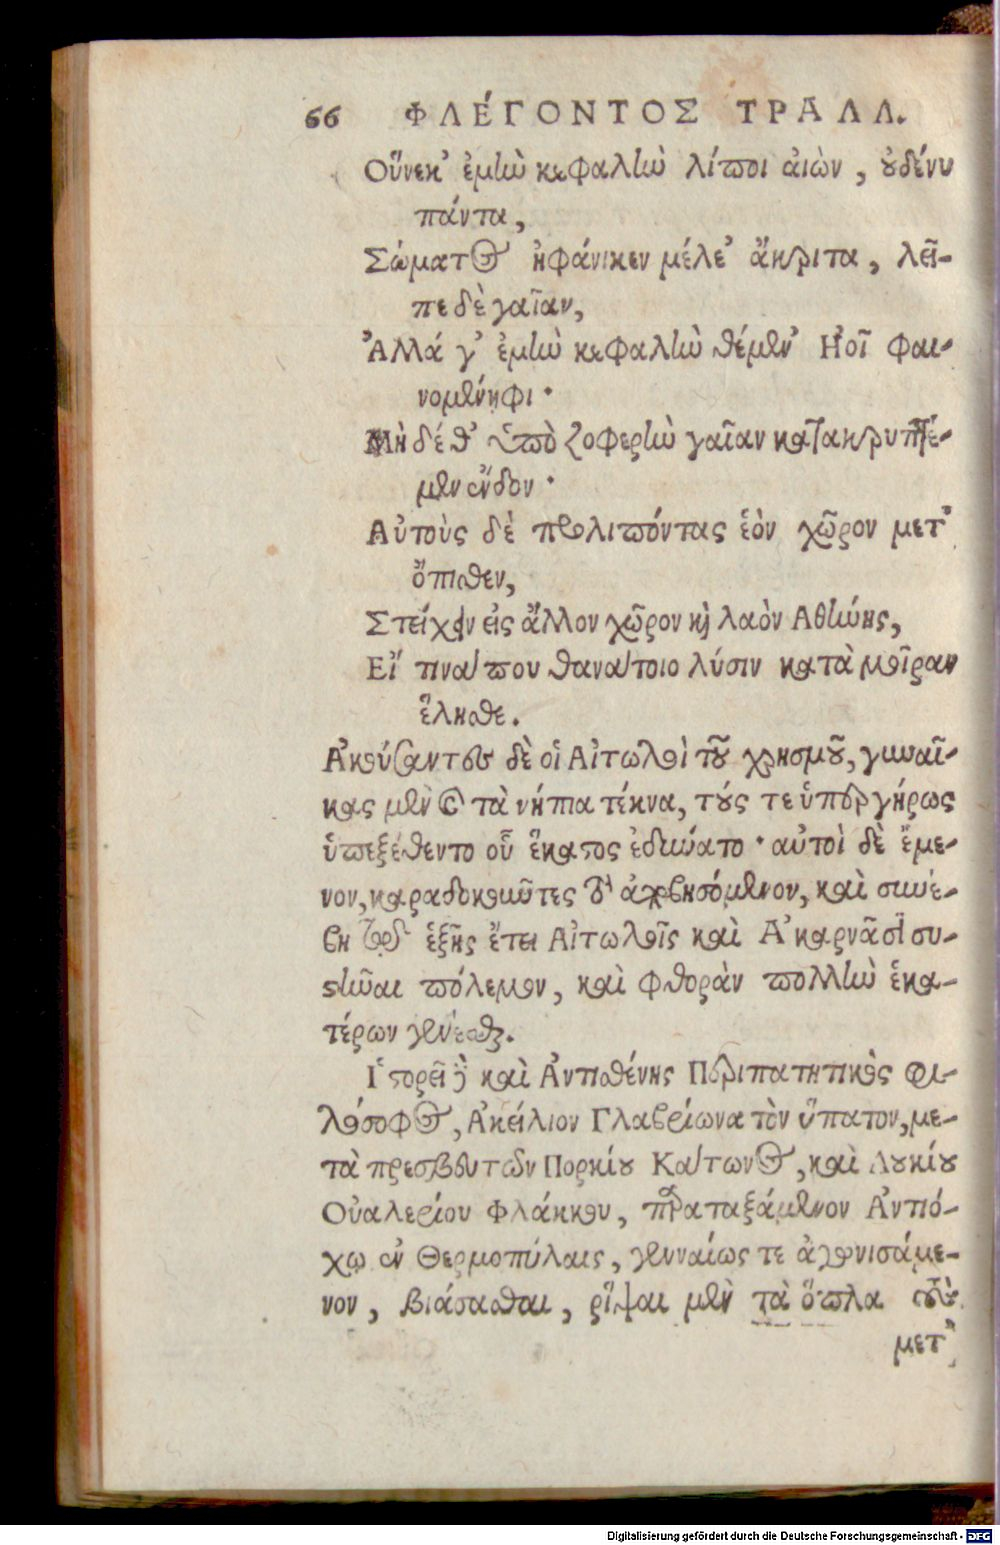 66 ΦΛΈΓΟΝΤΟΣ ΤΡΑΛΛ.
Οὕνεκ' ἐμὴν κεφαλὴν λίποι ἀιὼν, οὐδένυ
πάντα,
Σώματος ἠφάνικεν μέλε' ἄκριτα, λεῖ-
πε δὲ γαῖαν,
Ἀλλά γ' ἐμὴν κεφαλὴν θέμεν' Ηοῖ φαι-
νομένηφι·
Μὴ δέ θ' ὑπὸ ζοφερὴν γαῖαν κατακρυπτέ-
μεν ἔνδον·
Αὐτοὺς δὲ προλιπόντας ἑὸν χῶρον μετ'
ὄπισθεν,
Στείχειν εἰς ἄλλον χῶρον καὶ λαὸν Αθήνης,
Εἴ τινά που θανάτοιο λύσιν κατὰ μοῖραν
ἕλησθε.
Ἀκούσαντες δὲ οἱ Αἰτωλοὶ τοῦ χρησμοῦ, γυναῖ-
κας μὲν καὶ τὰ νήπια τέκνα, τούς τε ὑπεργήρως
ὑπεξέθεντο οὗ ἕκαστος ἐδύνατο· αὐτοὶ δὲ ἔμε-
νον, καραδοκοῦντες τὸ ἀποβησόμενον, καὶ συνέ-
βη τῷ ἑξῆς ἔτει Αἰτωλοῖς καὶ Ἀκαρνᾶσι συ-
στῆναι πόλεμον, καὶ φθορὰν πολλὴν ἑκα-
τέρων γενέσθαι.
Ἱστορεῖ δὲ καὶ Ἀντισθένης Περιπατητικὸς φι-
λόσοφος, Ἀκείλιον Γλαβρίωνα τὸν ὕπατον, με-
τὰ πρεσβευτῶν Πορκίου Κάτωνος, καὶ Λουκίου
Οὐαλερίου Φλάκκου, παραταξάμενον Ἀντιό-
χῳ ἐν Θερμοπύλαις, γενναίως τε ἀγωνισάμε-
νον, βιάσασθαι, ῥῖψαι μὲν τὰ ὅπλα τοὺς
μετ'
Digitalisierung gefördert durch die Deutsche Forschungsgemeinschaft - DFG